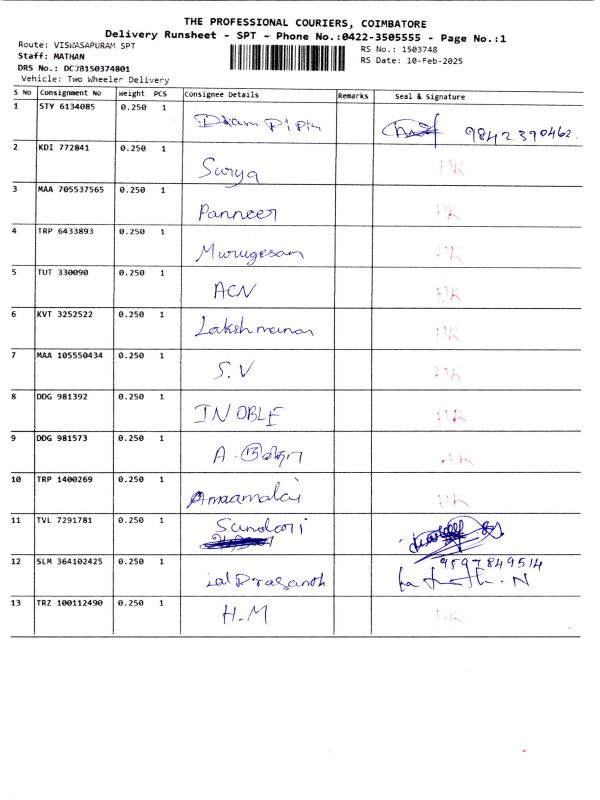 THE PROFESSIONAL COURIERS, COIMBATORE
Delivery Runsheet - SPT - Phone No.:0422-3505555 - Page No.:1
Route: VISWASAPURAM SPT
RS No.: 1503748
Staff: MATHAN
RS Date: 10-Feb-2025
DRS No.: DC78150374801
Vehicle: Two Wheeler Delivery
S No Consignment No Weight PCS Consignee Details Remarks Seal & Signature
1 STY 6134085 0.250 1 9842390462.
2 KDI 772841 0.250 1 Surya
3 MAA 705537565 0.250 1 Panneer
4 TRP 6433893 0.250 1 Murugesan
5 TUT 330090 0.250 1 ACN
6 KVT 3252522 0.250 1 Lakshmanan
7 MAA 105550434 0.250 1 S.V
8 DDG 981392 0.250 1 INOBLE
9 DDG 981573 0.250 1 A.
10 TRP 1400269 0.250 1 Annamalai
11 TVL 7291781 0.250 1 Sundari
9597849514
12 SLM 364102425 0.250 1
13 TRZ 100112490 0.250 1 H.M